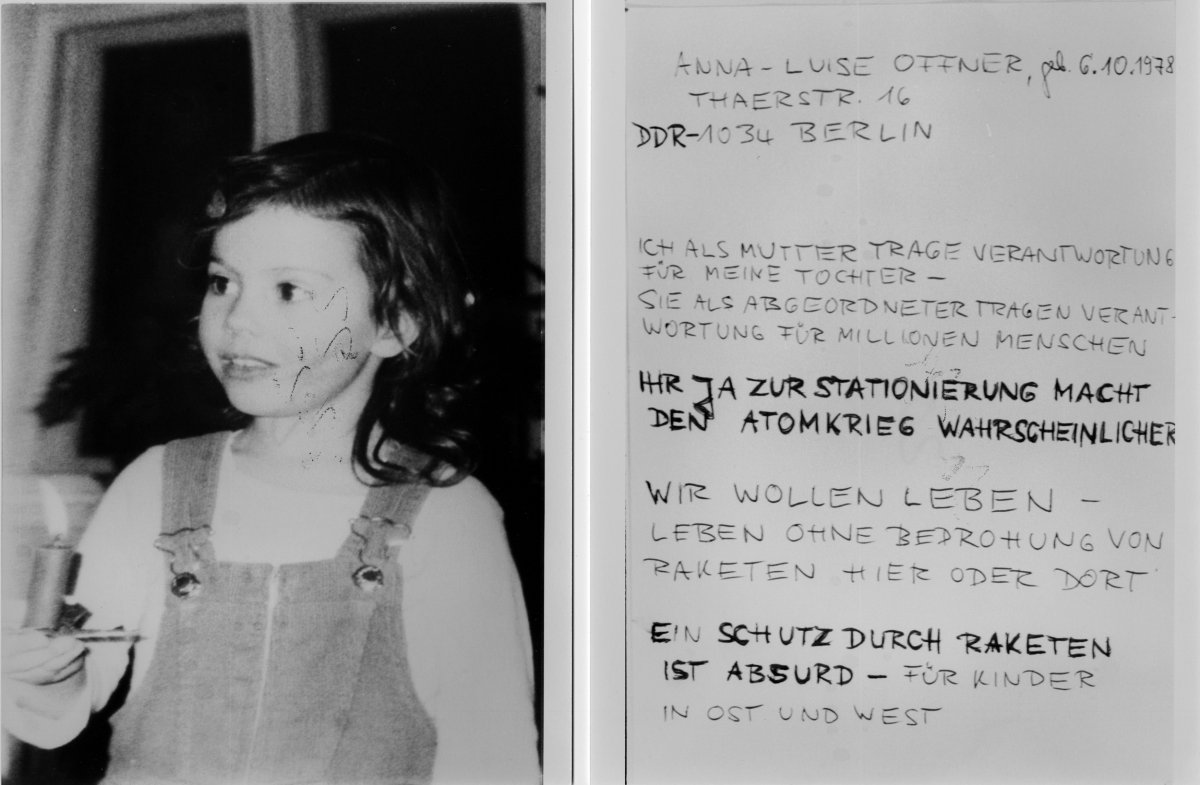 ANNA-LUISE OFFNER, geb. 6.10.1978
THAERSTR. 16
DDR-1034 BERLIN
ICH ALS MUTTER TRAGE VERANTWORTUNG
FÜR MEINE TOCHTER –
SIE ALS ABGEORDNETER TRAGEN VERANT-
WORTUNG FÜR MILLIONEN MENSCHEN
IHR JA ZUR STATIONIERUNG MACHT
DEN ATOMKRIEG WAHRSCHEINLICHER
WIR WOLLEN LEBEN –
LEBEN OHNE BEDROHUNG VON
RAKETEN HIER ODER DORT
EIN SCHUTZ DURCH RAKETEN
IST ABSURD – FÜR KINDER
IN OST UND WEST